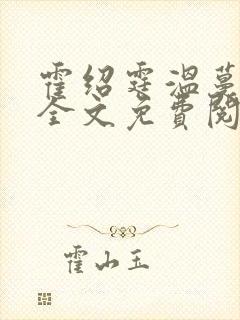 霍绍霆温蔓
全文免费阅
霍山玉